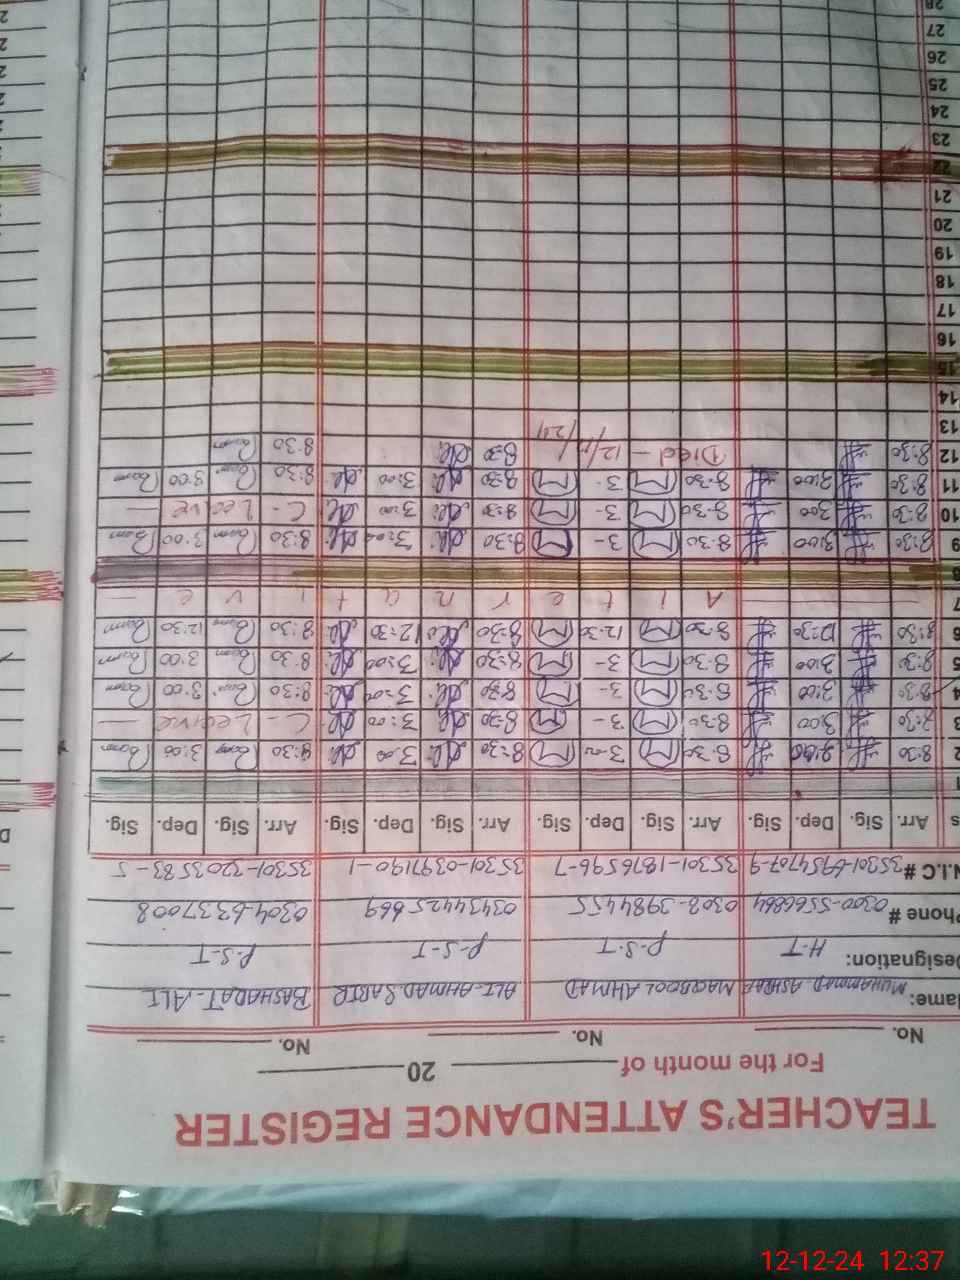 TEACHER'S ATTENDANCE REGISTER
For the month of 20
No. No. No.
Name: MUHAMMAD ASHRAF MAQBOOL AHMAD ALI-AHMAD SABIR BASHARAT-ALI
Designation: H-T P-S-T P-S-T P-S-T
Phone # 0300-5566864 0308-3984455 03434425669 0304-6337008
N.I.C # 35301-6954707-9 35301-1876596-7 35301-0397190-1 35301-3203583-5
Arr. Sig. Dep. Sig. Arr. Sig. Dep. Sig. Arr. Sig. Dep. Sig. Arr. Sig. Dep. Sig.
1
2 8:30 3:00 8:30 3:00 8:30 3:00 8:30 3:00
3 8:30 3:00 8:30 3- 8:30 3:00 C-Leave —
4 8:30 3:00 8:30 3- 8:30 3:00 8:30 3:00
5 8:30 3:00 8:30 3- 8:30 3:00 8:30 3:00
6 8:30 12:30 8:30 12:30 8:30 12:30 8:30 12:30
7 A i t e r n a t i v e —
8
9 8:30 3:00 8:30 3- 8:30 3:00 8:30 3:00
10 8:30 3:00 8:30 3- 8:30 3:00 C-Leave —
11 8:30 3:00 8:30 3- 8:30 3:00 8:30 3:00
12 8:30 Died - 12/11/24 8:30 8:30
13
14
15
16
17
18
19
20
21
22
23
24
25
26
27
28
12-12-24 12:37